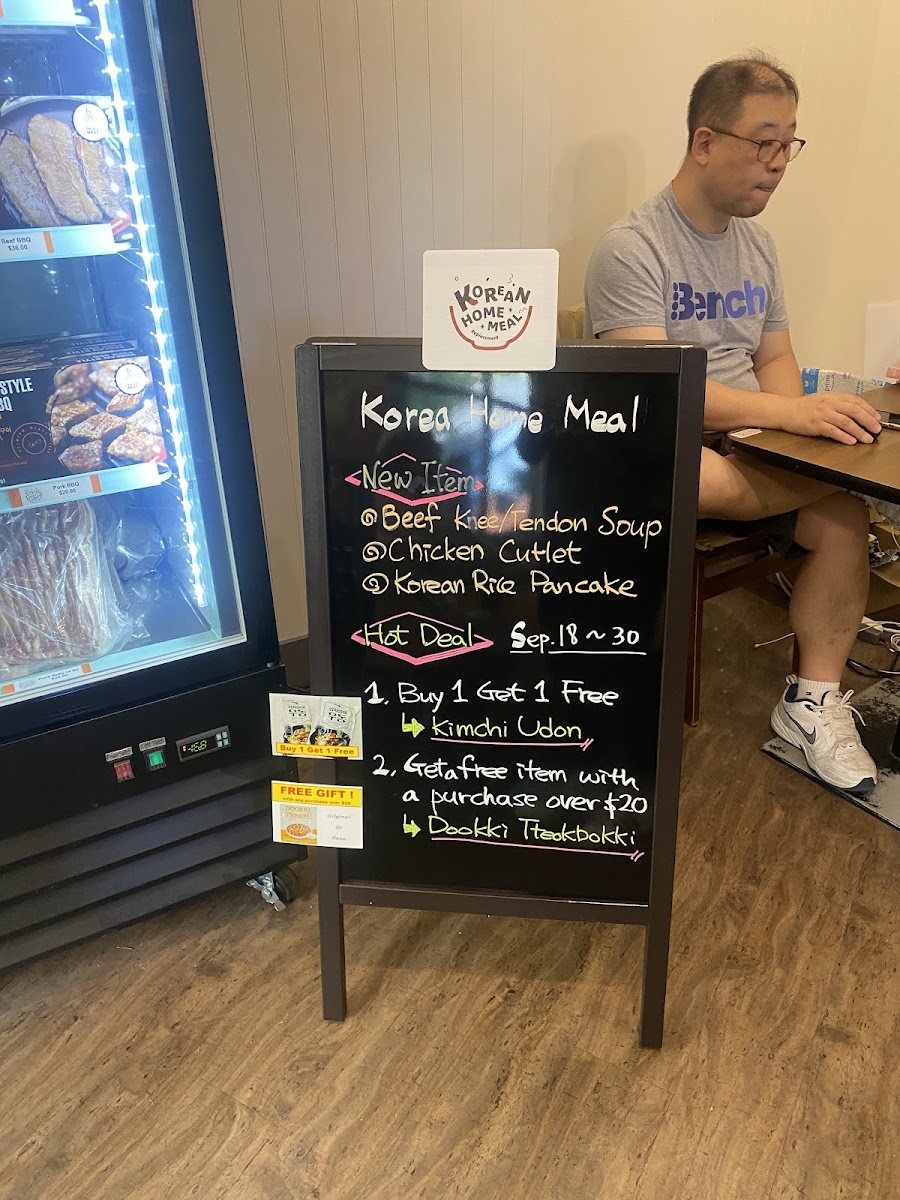 Beef BBQ
$36.00
STYLE
BQ
Pork BBQ
$20.00
KOREAN
HOME
MEAL
Replacement
Korea Home Meal
New Item
Beef Knee/Tendon Soup
Chicken Cutlet
Korean Rice Pancake
Hot Deal Sep. 18 ~ 30
1. Buy 1 Get 1 Free
Kimchi Udon
2. Get a free item with
a purchase over $20
Dookki Tteokbokki
Buy 1 Get 1 Free
FREE GIFT !
with any purchase over $20
DOOKKI
Original
Or
Rose
-16.8
Bench